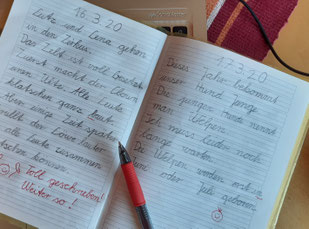 16.3.20
Lutz und Lena gehen
in den Zirkus.
Das Zelt ist voll
Zuerst macht der Clown
einen Witz. Alle Leute
klatschen ganz laut.
einige Zeit später
der Löwe
alle Leute zusammen
können.
Toll geschrieben!
Weiter so!
17.3.20
Dieses Jahr bekommt
unser Hund junge
man Welpen.
Ich muss leider noch
lange warten.
Die Welpen werden erst in
oder Juli geboren.